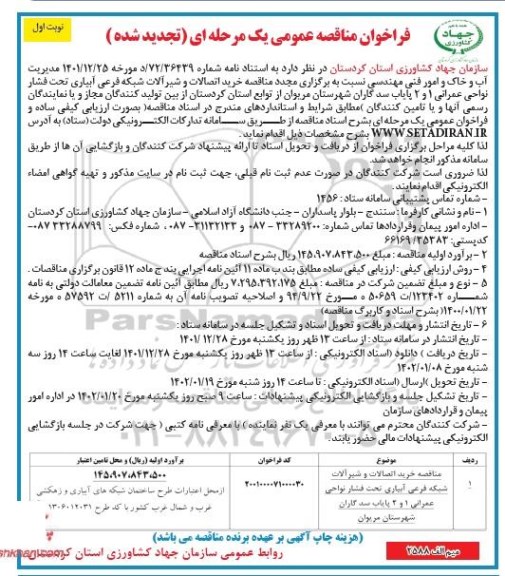 نوبت اول
جهاد کشاورزی
فراخوان مناقصه عمومی یک مرحله ای (تجدید شده)
سازمان جهاد کشاورزی استان کردستان در نظر دارد به استناد نامه شماره ۷۲/۳۶۴۳۹/د مورخه ۱۴۰۱/۱۲/۲۵ مدیریت
آب و خاک و امور فنی مهندسی نسبت به برگزاری مجدد مناقصه خرید اتصالات و شیرآلات شبکه فرعی آبیاری تحت فشار
نواحی عمرانی ۱ و ۲ پایاب سد گاران شهرستان مریوان از توابع استان کردستان از بین تولید کنندگان مجاز و یا نمایندگان
رسمی آنها و یا تامین کنندگان )مطابق شرایط و استانداردهای مندرج در اسناد مناقصه( بصورت ارزیابی کیفی ساده و
فراخوان عمومی یک مرحله ای بشرح اسناد مناقصه از طریق سامانه تدارکات الکترونیکی دولت (ستاد) به آدرس
WWW.SETADIRAN.IR بشرح مشخصات ذیل اقدام نماید.
لذا کلیه مراحل برگزاری فراخوان از دریافت و تحویل اسناد تا ارائه پیشنهاد شرکت کنندگان و بازگشایی آن ها از طریق
سامانه مذکور انجام خواهد شد.
لذا ضروری است شرکت کنندگان در صورت عدم ثبت نام قبلی، جهت ثبت نام در سایت مذکور و تهیه گواهی امضاء
الکترونیکی اقدام نمایند.
- شماره تماس پشتیبانی سامانه ستاد : ۱۴۵۶
۱ - نام و نشانی کارفرما : سنندج - بلوار پاسداران - جنب دانشگاه آزاد اسلامی - سازمان جهاد کشاورزی استان کردستان
- اداره امور پیمان وقراردادها تماس شماره: ۳۳۲۸۹۲۰۰ - ۰۸۷ و ۳۱۱۳۲۱۳۳- ۰۸۷ ، شماره فکس: ۳۳۲۸۸۷۹۹ -۰۸۷
کدپستی: ۳۵۳۸۳/ ۶۶۱۶۹
۲ - برآورد اولیه مناقصه : مبلغ ۱۴۵،۹۰۷،۸۴۳،۵۰۰ ریال بشرح اسناد مناقصه
۴ - روش ارزیابی کیفی : ارزیابی کیفی ساده مطابق بند ب ماده ۱۱ آئین نامه اجرایی بند ج ماده ۱۲ قانون برگزاری مناقصات .
۵ - نوع و مبلغ تضمین شرکت در مناقصه : مبلغ ۷،۲۹۵،۳۹۲،۱۷۵ ریال مطابق آئین نامه تضمین معاملات دولتی به نامه
شماره ۱۲۳۴۰۲/ت ۵۰۶۵۹ ه مورخ ۹۴/۹/۲۲ و اصلاحیه تصویب نامه آن به شماره ۵۲۱۱ /ت ۵۷۵۹۲ ه مورخه
۱۴۰۰/۰۱/۲۲( بشرح اسناد و کاربرگ مناقصه)
۶ - تاریخ انتشار و مهلت دریافت و تحویل اسناد و تشکیل جلسه در سامانه ستاد :
- تاریخ انتشار در سامانه ستاد : از ساعت ۱۳ ظهر روز یکشنبه مورخ ۱۲/۲۸/ ۱۴۰۱
- تاریخ دریافت ) دانلود (اسناد الکترونیکی : از ساعت ۱۳ ظهر روز یکشنبه مورخ ۱۴۰۱/۱۲/۲۸ لغایت ساعت ۱۴ روز سه
شنبه مورخ ۱۴۰۲/۰۱/۰۸
- تاریخ تحویل )ارسال (اسناد الکترونیکی : تا ساعت ۱۴ روز شنبه مورخ ۱۴۰۲/۰۱/۱۹
- تاریخ تشکیل جلسه و بازگشایی الکترونیکی پیشنهادات : ساعت ۹ صبح روز یکشنبه مورخ ۱۴۰۲/۰۱/۲۰ در اداره امور
پیمان و قراردادهای سازمان
- شرکت کنندگان محترم می توانند با معرفی یک نفر نماینده ) با معرفی نامه کتبی ( جهت شرکت در جلسه بازگشایی
الکترونیکی پیشنهادات مالی حضور یابند.
ردیف موضوع کد فراخوان برآورد اولیه (ریال) و محل تامین اعتبار
۱ مناقصه خرید اتصالات و شیرآلات شبکه فرعی آبیاری تحت فشار نواحی عمرانی ۱ و ۲ پایاب سد گاران شهرستان مریوان ۲۰۰۱۰۰۰۰۷۱۰۰۰۰۳۰ ۱۴۵،۹۰۷،۸۴۳،۵۰۰
ازمحل اعتبارات طرح ساختمان شبکه های آبیاری و زهکشی
غرب و شمال غرب کشور با کد طرح ۱۳۰۶۰۱۲۰۳۱
(هزینه چاپ آگهی بر عهده برنده مناقصه می باشد)
روابط عمومی سازمان جهاد کشاورزی استان کردستان
میم الف ۲۵۸۸
ParsNamadData
۰۲۱-۸۸۳۴۹۶۷۰